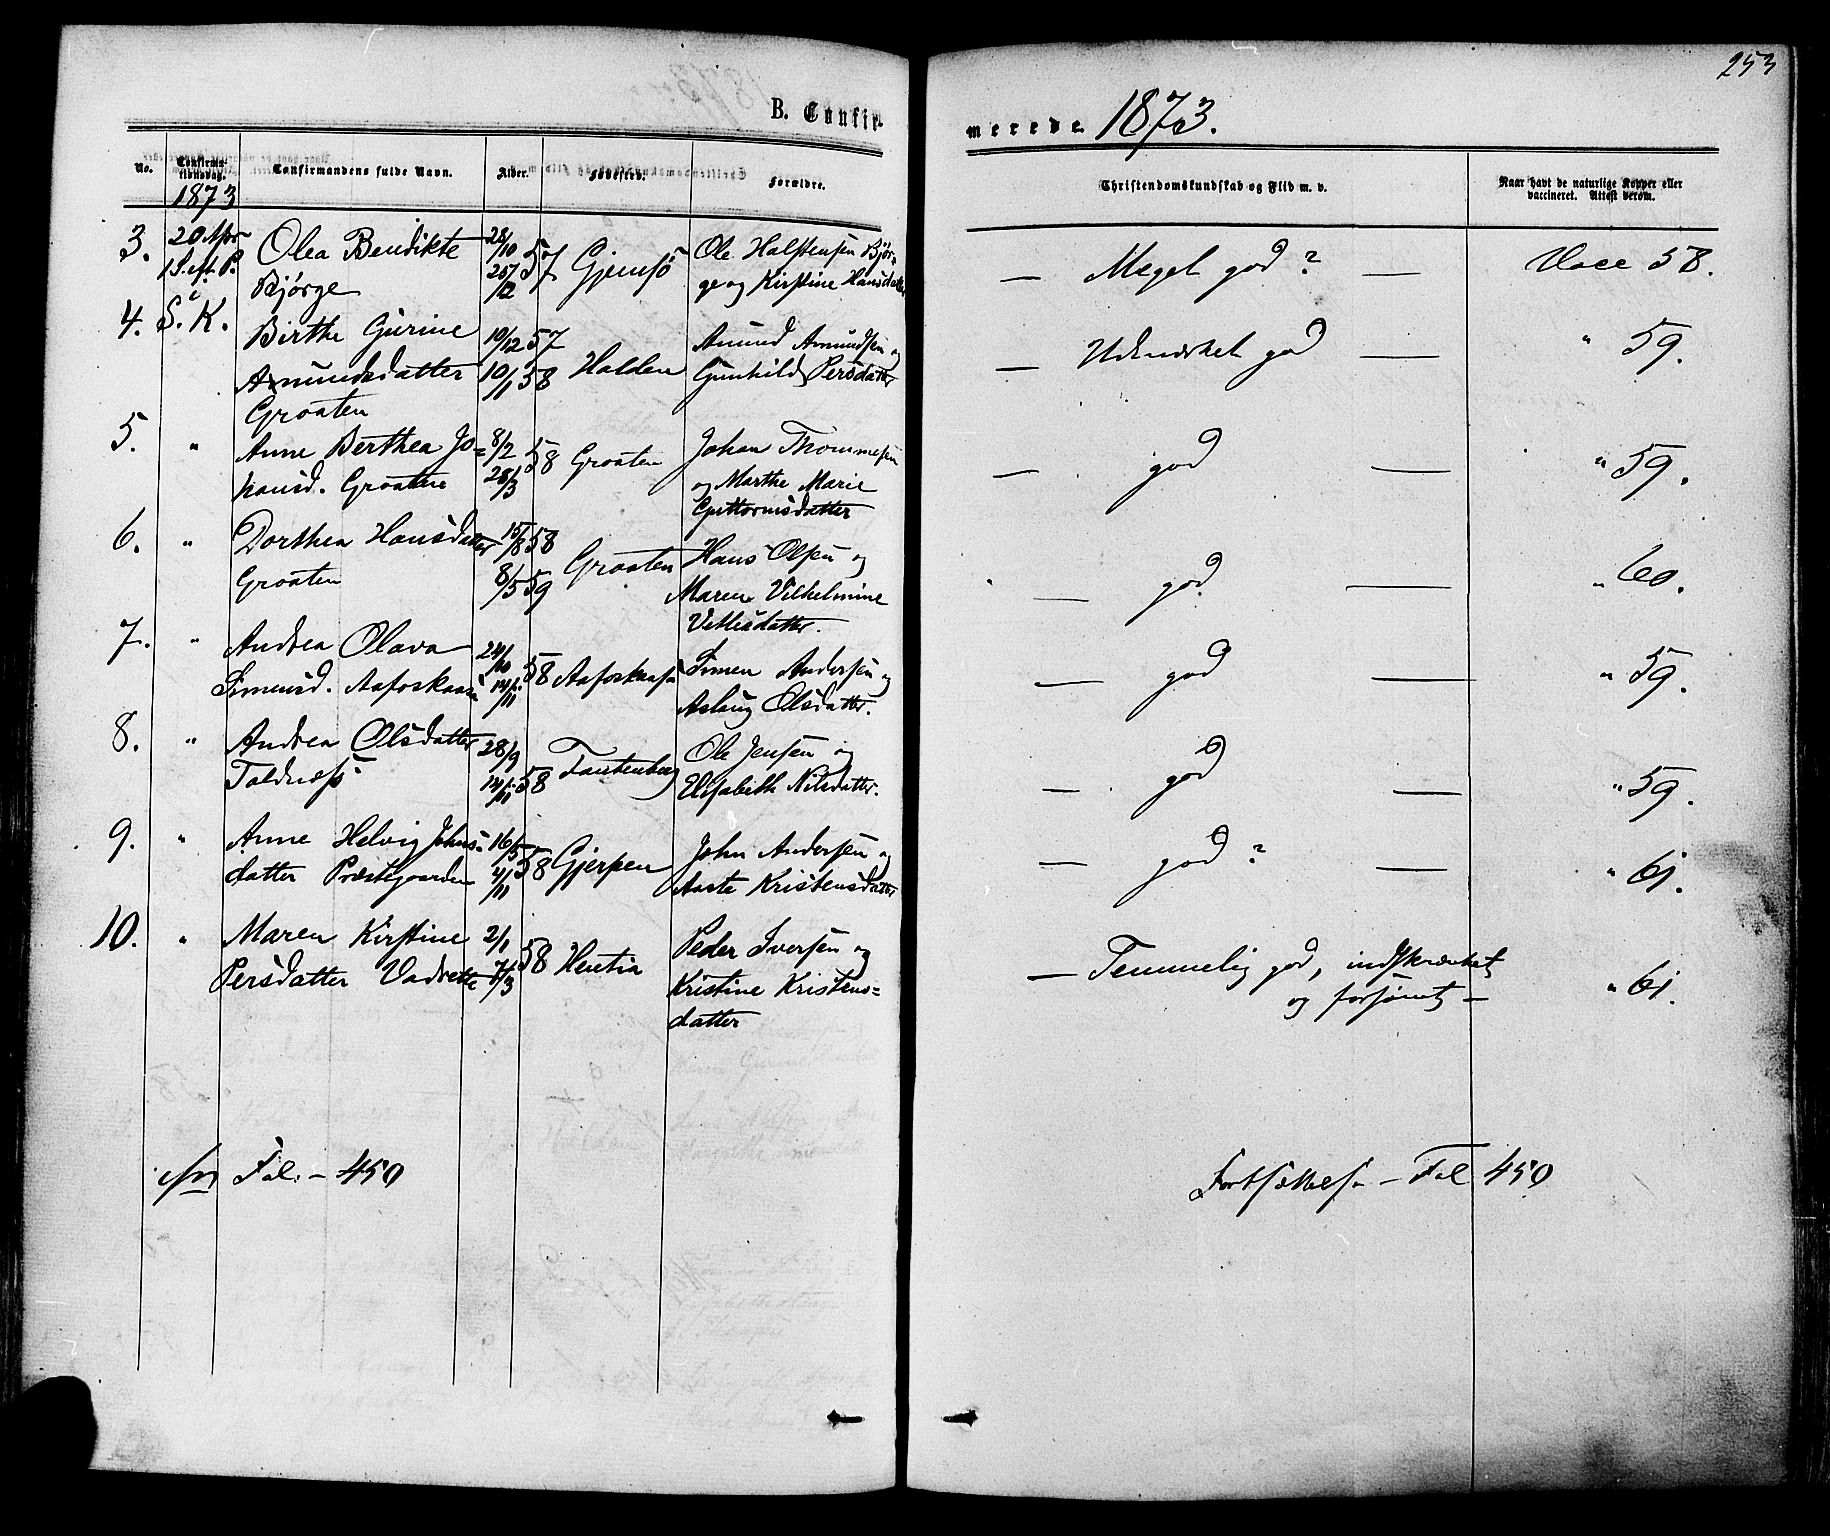 253
B. Confir-
merede. 1873.
No.
Confirma-
tionsdag.
Confirmandens fulde Navn.
Alder.
Fødested.
Forældre.
Christendomskundskab og Flid m. v.
Naar havt de naturlige Kopper eller
vaccineret. Attest derom.
1873
3. 20 Apr 1 S. eft. P. i S. K.
Olea Bendikte
Bjørge
28/10 57
Gjemsö
Ole Halstensen Bjør-
ge og Kirstine Hansdatter
— Meget god? —
Vacc 58.
4.
Birthe Gurine
Amundsdatter
Graaten
10/12 57
10/1 58
Halden
Amund Amundsen og
Gunhild Persdatter
— Udmærket god —
" 59.
5. "
Anne Berthea Jo-
hansd. Graaten
8/2 58
28/3
Graaten
Johan Thommesen
og Marthe Marie
Guttormsdatter
— god —
" 59.
6. "
Dorthea Hansdatter
Graaten
15/8 58
8/5 59
Graaten
Hans Olsen og
Maren Vilhelmine
Vetlisdatter.
— god —
" 60.
7. "
Andrea Olava
Simensd. Aafoskaasa
24/10 58
14/11
Aafoskaasa
Simen Andersen og
Aslaug Olsdatter.
— god —
" 59.
8. "
Andrea Olsdatter
Toldnæss
28/9
14/11 58
Fantenberg
Ole Jensen og
Elisabeth Nilsdatter.
— god —
" 59.
9. "
Anne Helvig Johns-
datter Præstegaarden
16/5 58
4/11
Gjerpen
John Andersen og
Aaste Kristensdatter
— god? —
" 61.
10. "
Maren Kirstine
Persdatter Vadrette
2/1 58
7/3
Hentia
Peder Iversen og
Kristine Kristens=
datter
— Temmelig god, indskrænket
og forsömt —
" 61.
Fol. – 450
Fortsættelse – Fol 450